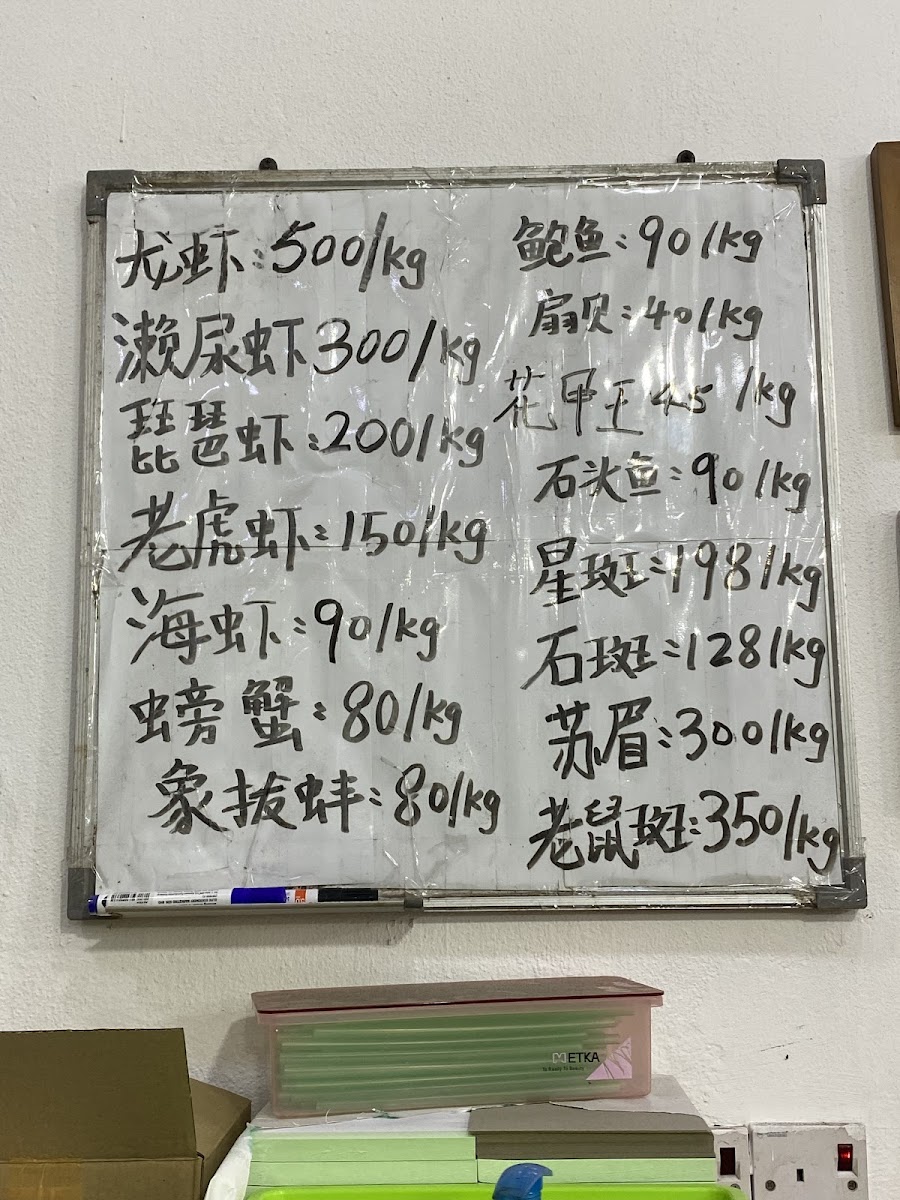 龙虾:500/kg
濑尿虾300/kg
琵琶虾:200/kg
老虎虾:150/kg
海虾:90/kg
螃蟹:80/kg
象拔蚌:80/kg
鲍鱼:90/kg
扇贝:40/kg
花甲王45/kg
石头鱼:90/kg
星斑:198/kg
石斑:128/kg
苏眉:300/kg
老鼠斑:350/kg
METKA